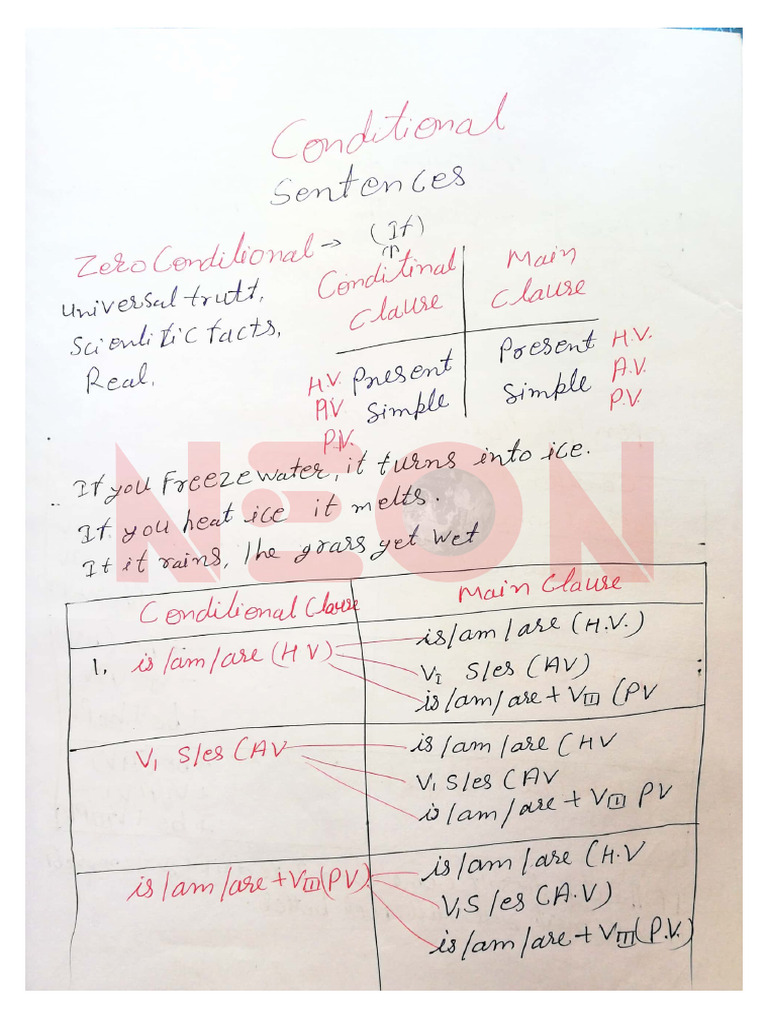 Conditional
Sentences
Zero Conditional → (If)
universal trutt,
Scientific facts,
Real.
Conditinal Clause
Main Clause
H.V. Present
AV Simple
P.V.
Present H.V.
Simple A.V.
P.V.
NEON
If you Freeze water, it turns into ice.
If you heat ice it melts.
If it rains, The grass get wet
Conditional Clause
Main Clause
1. is/am/are (HV)
is/am/are (H.V.)
VI S/es (AV)
is/am/are + VIII (PV
V1 S/es (AV
is/am/are (HV
V1 S/es (AV
is/am/are + VIII PV
is/am/are + VIII (PV)
is/am/are (H.V
V1 S/es (A.V)
is/am/are + VIII (P.V.)